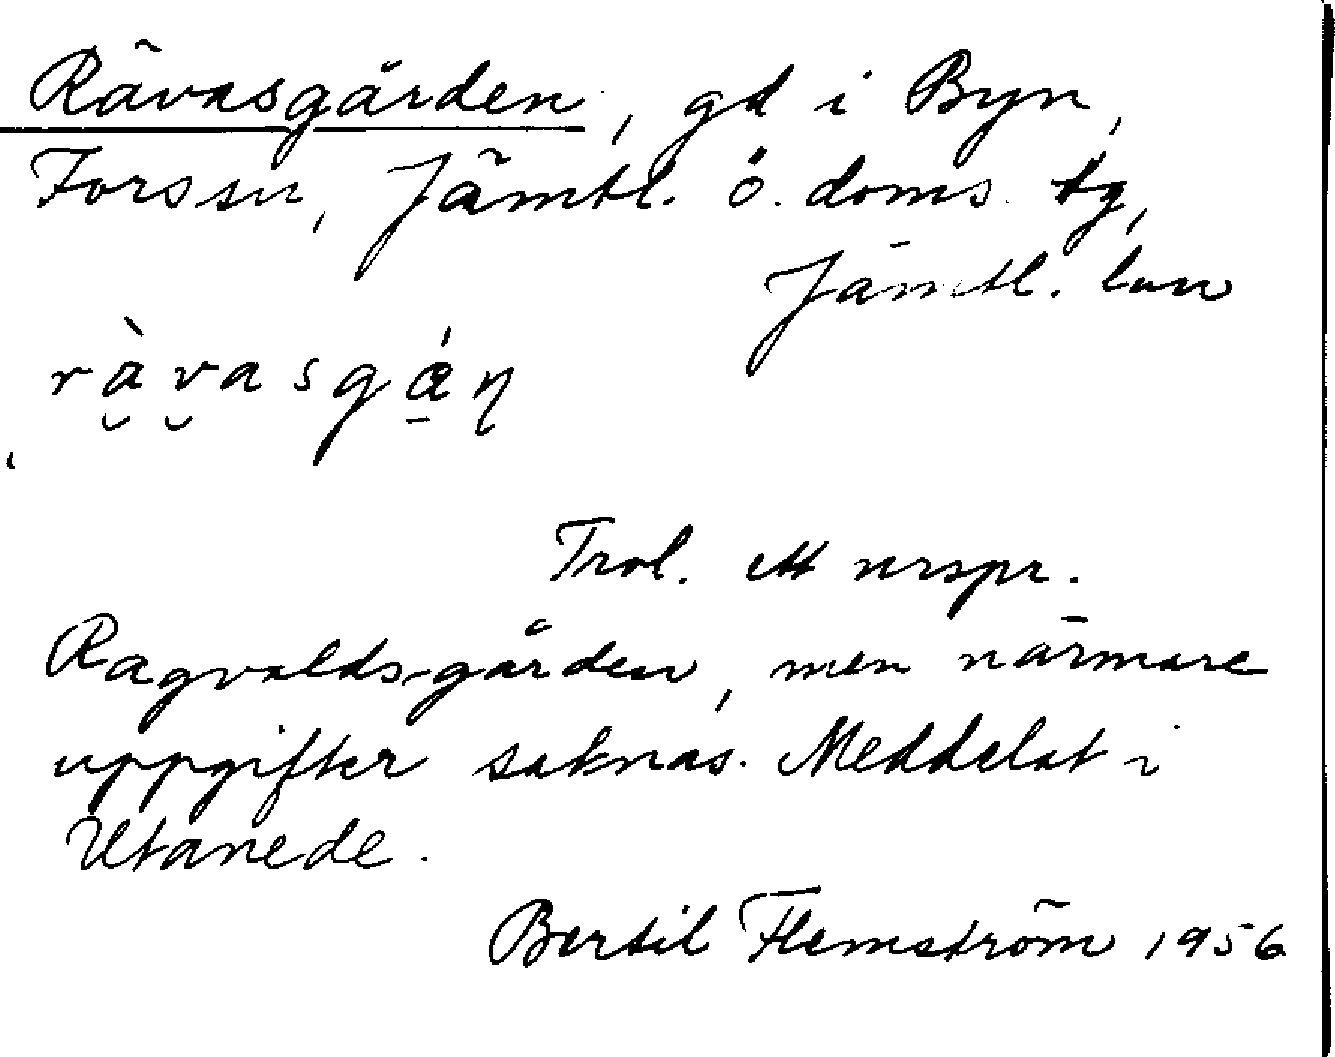 Rävasgården, gd i Byn,
Forssn, Jämtl. ö. doms. tg,
Jämtl. län
ràvasgáŋ
Trol. ett urspr.
Ragvalds-gården, men närmare
uppgifter saknas. Meddelat i
Utanede.
Bertil Flemström 1956